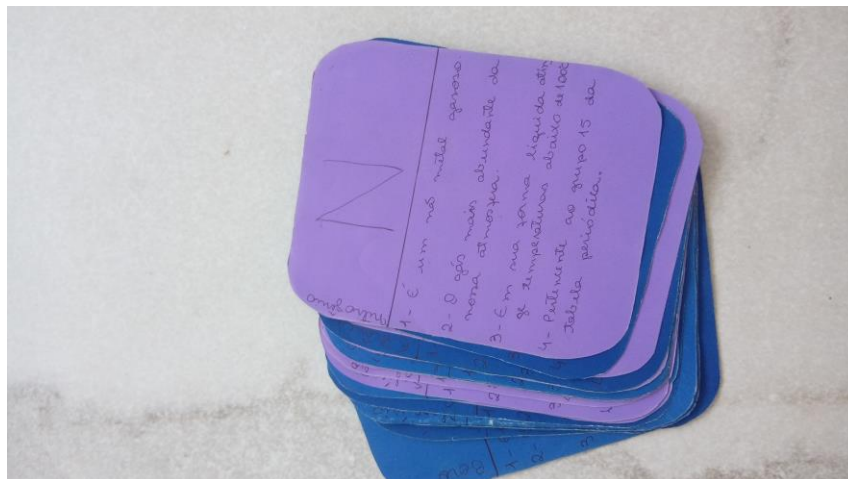 N
nitrogênio
1- É um não metal gasoso
2- O gás mais abundante da
nossa atmosfera.
3- Em sua forma líquida atin
ge temperaturas abaixo de
4- Pertencente ao grupo 15 da
tabela periódica.